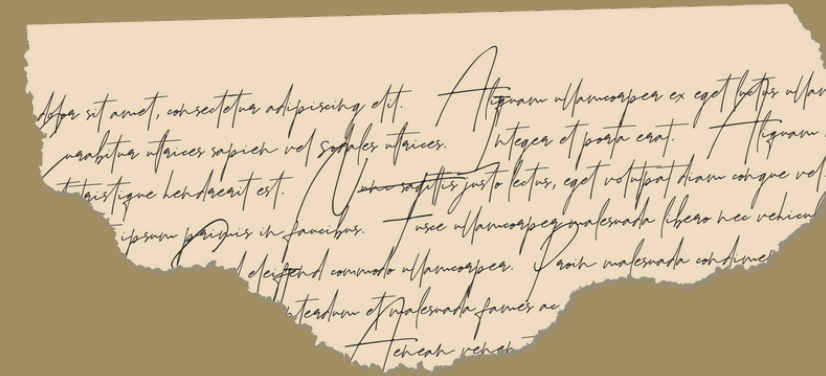 dolor sit amet, consectetur adipiscing elit. Aliquam ullamcorper ex eget luctus ullam
urabitur ultrices sapien vel sodales ultrices. Integer et porta erat. Aliquam
t tristique hendrerit est. Nunc sagittis justo lectus, eget volutpat diam congue vel.
ipsum primis in faucibus. Fusce ullamcorper malesuada libero nec vehicul
d eleifend commodo ullamcorper. Proin malesuada condime
nterdum et malesuada fames ac
Aenean